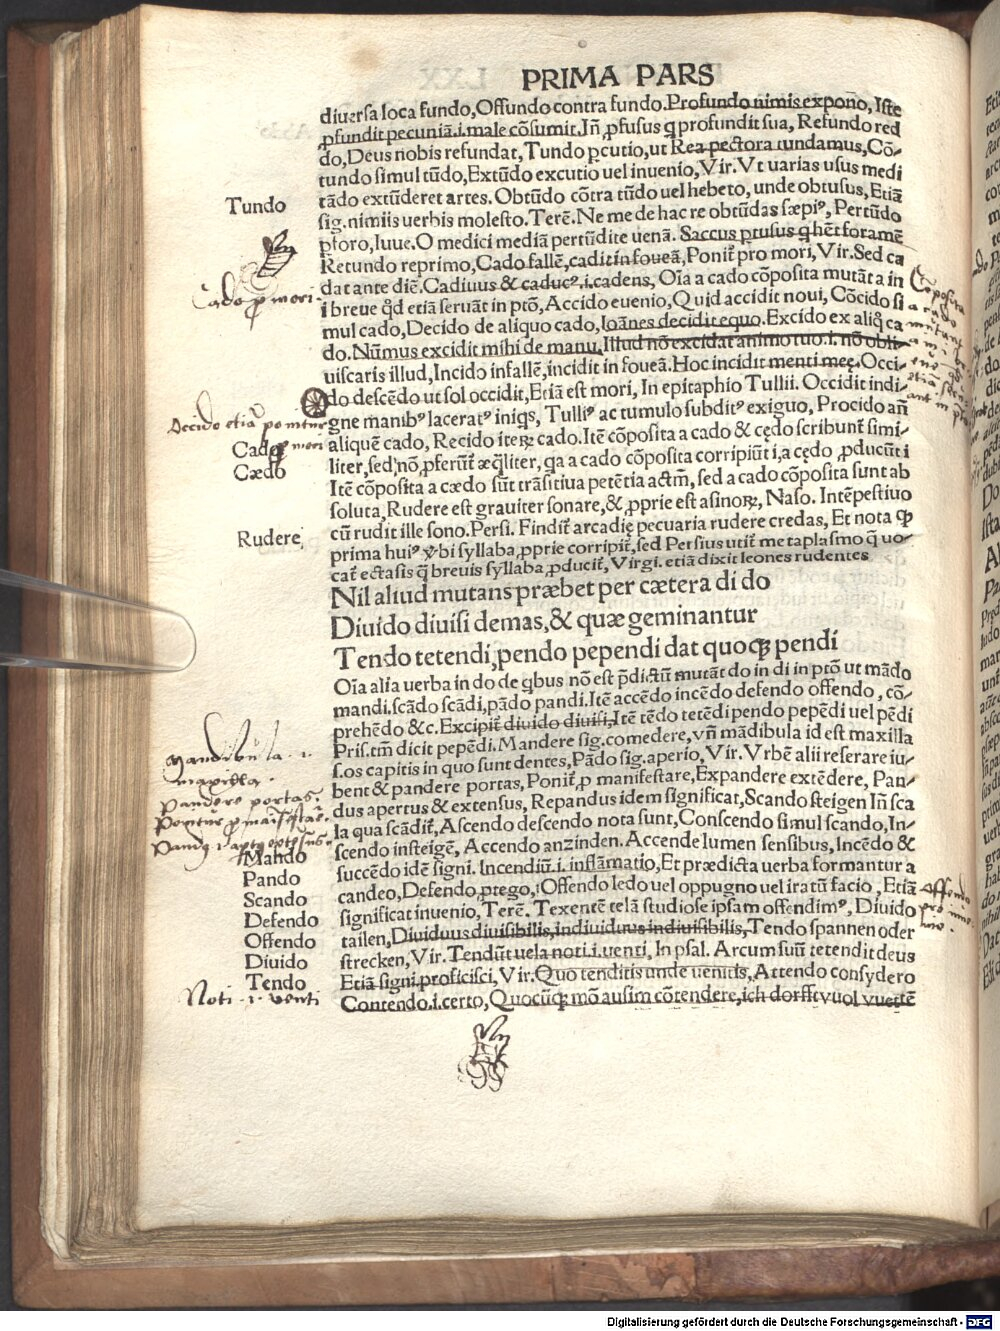 PRIMA PARS
diuersa loca fundo, Offundo contra fundo. Profundo nimis expono, Iste
ꝓfundit pecuniā.i.male cōsumit. Iñ ꝓfusus q profundit sua, Refundo red
do, Deus nobis refundat, Tundo ꝑcutio, ut Rea pectora tundamus, Cō-
tundo simul tūdo, Extūdo excutio uel inuenio, Vir. Vt uarias usus medi
tādo extūderet artes. Obtūdo cōtra tūdo uel hebeto, unde obtusus, Etiā
sig. nimiis uerbis molesto. Terē. Ne me de hac re obtūdas sæpiꝰ, Pertūdo
ꝑforo, Iuue. O medici mediā pertūdite uenā. Saccus ꝑtusus q hēt foramē
Retundo reprimo, Cado fallē, cadit in foueā, Poniť pro mori, Vir. Sed ca
dat ante diē. Cadiuus & caducꝰ.i.cadens, Oīa a cado cōposita mutāt a in
i breue qd etiā seruāt in ptō, Accido euenio, Quid accidit noui, Cōcido si
mul cado, Decido de aliquo cado, Ioānes decidit equo. Excido ex aliq̄ ca
do. Nūmus excidit mihi de manu. Illud nō excidat animo tuo.i. nō obli-
uiscaris illud, Incido infallē, incidit in foueā. Hoc incidit menti meę. Occi-
do descēdo ut sol occidit, Etiā est mori, In epitaphio Tullii. Occidit indi-
gne manibꝰ laceratꝰ iniqs, Tulliꝰ ac tumulo subditꝰ exiguo, Procido añ
aliquē cado, Recido iteꝝ cado. Itē cōposita a cado & cędo scribunť simi-
liter, sed nō ꝓferūť æq̄liter, qa a cado cōposita corripiūt i, a cędo ꝓducūt i
Itē cōposita a cædo sūt trāsitiua petētia actm̄, sed a cado cōposita sunt ab
soluta, Rudere est grauiter sonare, & ꝓprie est asinoꝝ, Naso. Intēpestiuo
cū rudit ille sono. Persi. Findiť arcadię pecuaria rudere credas, Et nota ꝙ
prima huiꝰ ꝟbi syllaba ꝓprie corripiť, sed Persius utiť metaplasmo q̄ uo-
cať ectasis q̄ breuis syllaba ꝓduciť, Virgi. etiā dixit leones rudentes
Nil aliud mutans præbet per cætera di do
Diuido diuisi demas, & quæ geminantur
Tendo tetendi, pendo pependi dat quoqꝫ pendi
Oīa alia uerba in do de qbus nō est p̄dictū mutāt do in di in ptō ut mādo
mandi. scādo scādi, pādo pandi. Itē accēdo incēdo defendo offendo, cō-
prehēdo &c. Excipiť diuido diuisi, Itē tēdo tetēdi pendo pepēdi uel pēdi
Pris. tm̄ dicit pepēdi. Mandere sig. comedere, vñ mādibula id est maxilla
s.os capitis in quo sunt dentes, Pādo sig. aperio, Vir. Vrbē alii reserare iu-
bent & pandere portas, Poniť ꝓ manifestare, Expandere extēdere, Pan-
dus apertus & extensus, Repandus idem significat, Scando steigen Iñ sca
la qua scādiť, Ascendo descendo nota sunt, Conscendo simul scando, In-
scendo insteigē, Accendo anzinden. Accende lumen sensibus, Incēdo &
succēdo idē signi. Incendiū.i. inflāmatio, Et prædicta uerba formantur a
candeo, Defendo ꝓtego, Offendo ledo uel oppugno uel iratū facio, Etiā
significat inuenio, Terē. Texentē telā studiose ipsam offendimꝰ, Diuido
tailen, Diuiduus diuisibilis, indiuiduus indiuisibilis, Tendo spannen oder
strecken, Vir. Tendūt uela noti.i.uenti, In psal. Arcum suū tetendit deus
Etiā signi. proficisci, Vir. Quo tenditis unde uenitis, Attendo consydero
Contendo.i.certo, Quocūqꝫ mō ausim cōtendere, ich dorfft vuol vuettē
Tundo
Cado ꝓ mori
Occido etiā ponitur
Cado ꝓ mori
Cædo
Rudere
Mandibula .i.
maxilla.
Pandere portas.
Ponitur ꝓ manifestare.
Mando
Pando
Scando
Defendo
Offendo
Diuido
Tendo
Noti .i. venti
Composita
a cado
mutant
a in i
etiā
offendo
pro inue
nio.